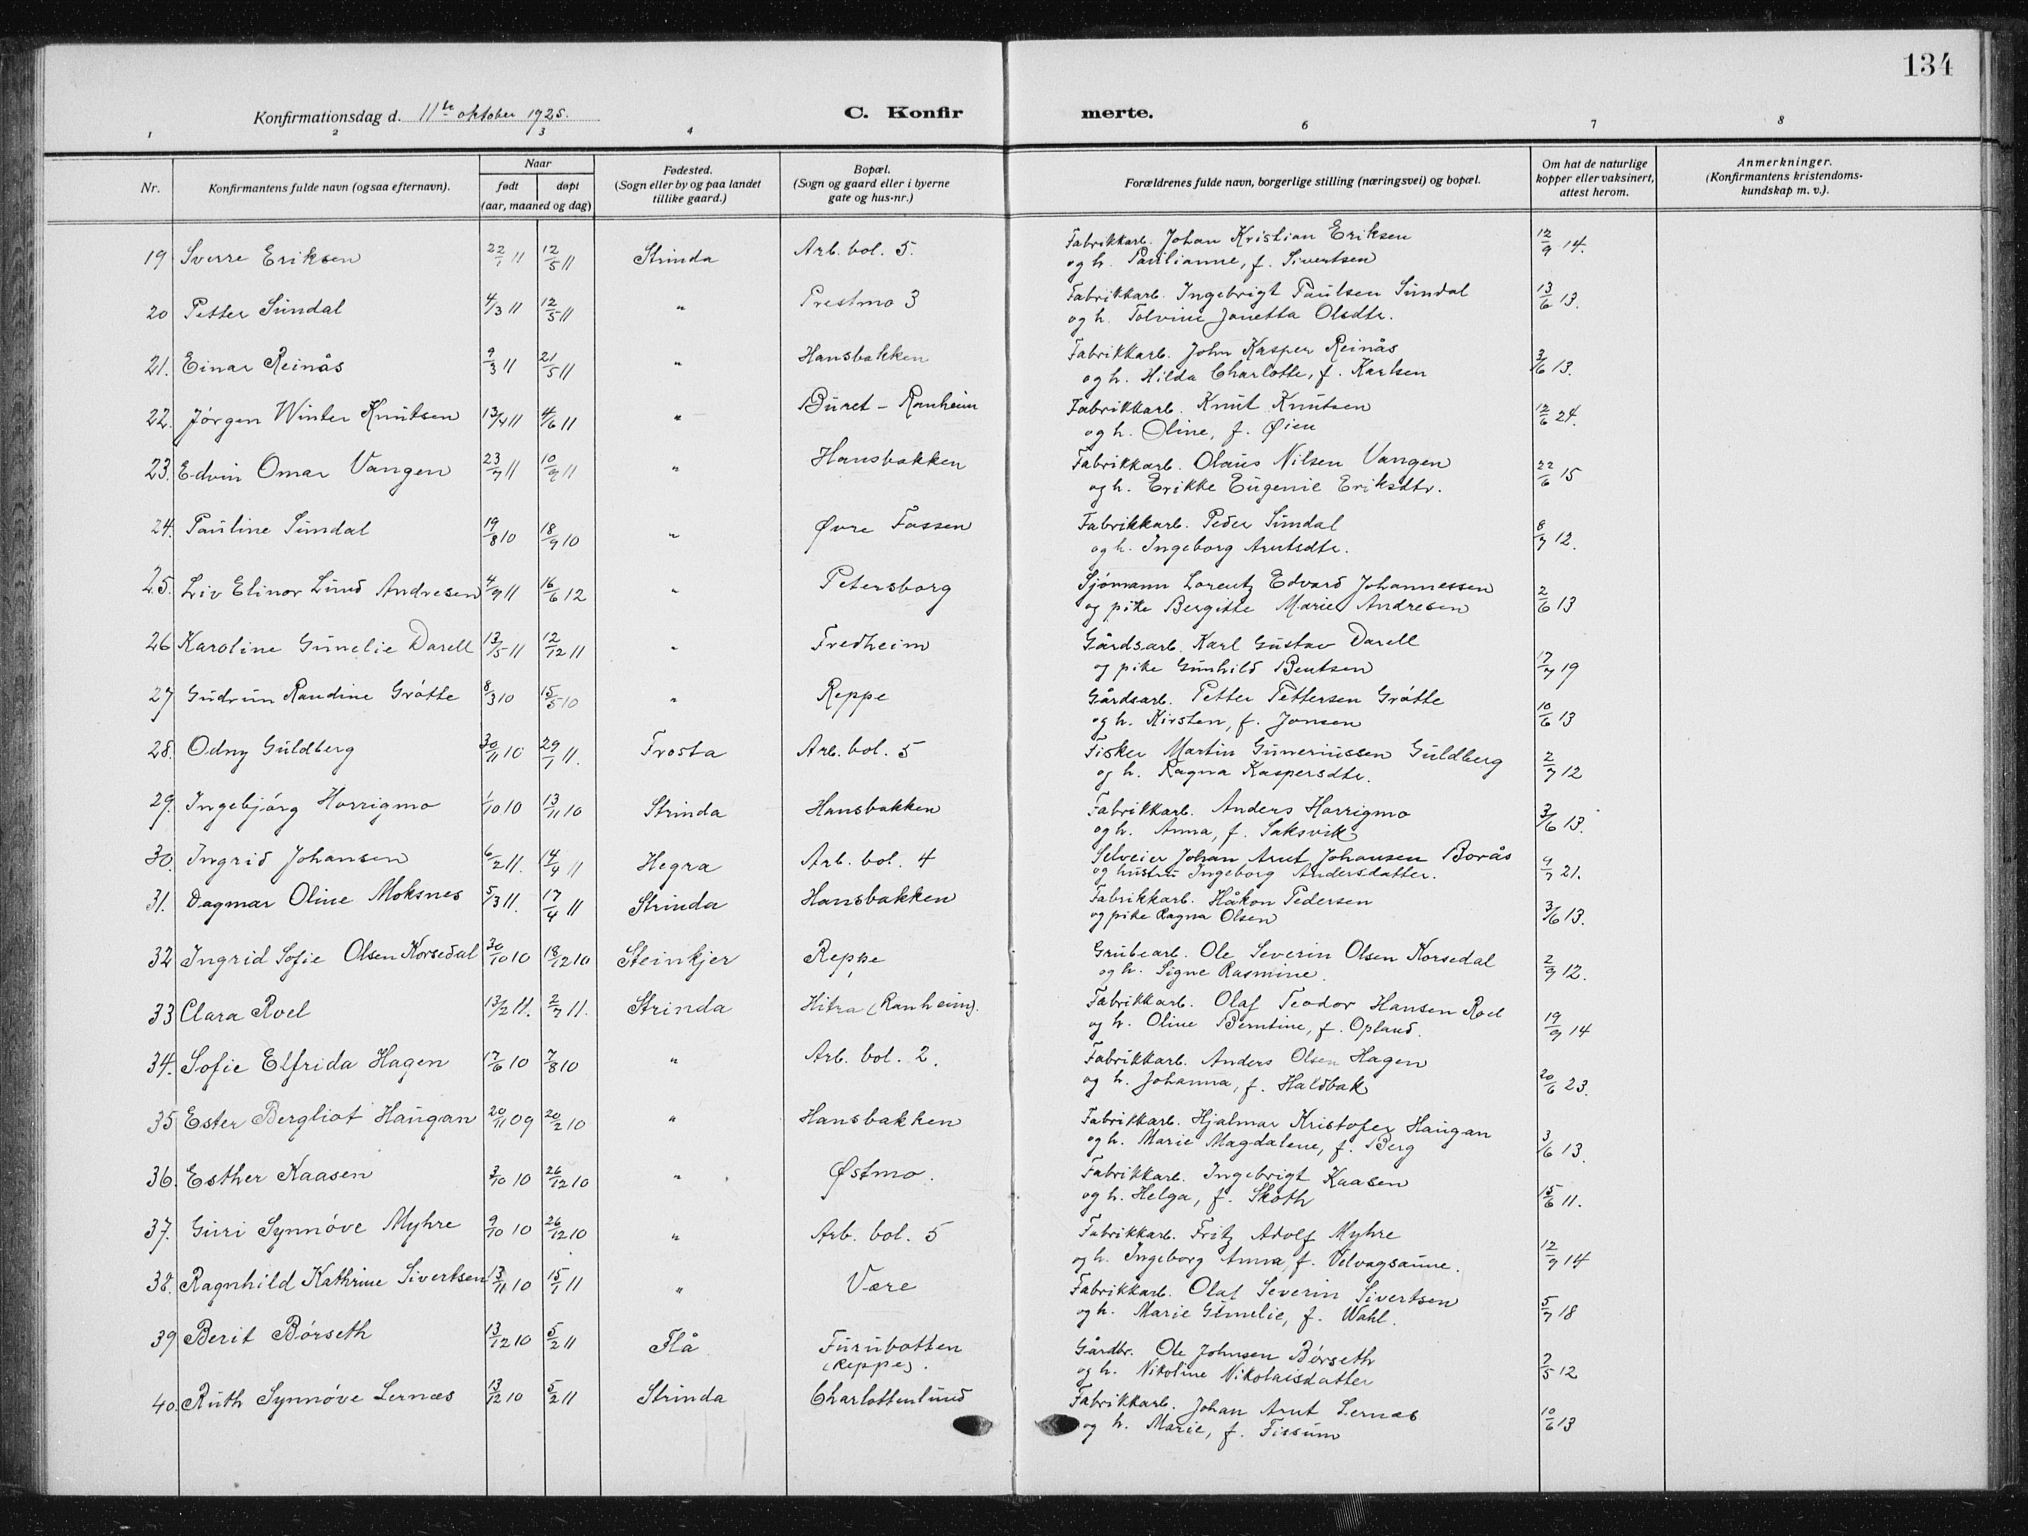 134
Konfirmationsdag d. 11te oktober 1925. C. Konfir merte.
1 2 3 4 6 7 8
Nr. Konfirmantens fulde navn (ogsaa efternavn). Naar født døpt (aar, maaned og dag) Fødested. (Sogn eller by og paa landet tillike gaard.) Bopæl. (Sogn og gaard eller i byerne gate og hus-nr.) Forældrenes fulde navn, borgerlige stilling (næringsvei) og bopæl. Om hat de naturlige kopper eller vaksinert, attest herom. Anmerkninger. (Konfirmantens kristendoms-kundskap m. v.).
19 Sverre Eriksen 22/1 11 12/5 11 Strinda Arb. bol. 5. Fabrikkarb. Johan Kristian Eriksen 12/9 14.
og h. Paulianne, f. Sivertsen
20 Petter Sundal 4/3 11 12/5 11 " Prestmo 3 Fabrikkarb. Ingebrigt Paulsen Sundal 13/6 13.
og h. Tolvine Jonetta Olsdtr.
21. Einar Reinås 9/3 11 21/5 11 " Hansbakken Fabrikkarb. John Kasper Reinås 3/6 13.
og h. Hilda Charlotte, f. Karlsen
22. Jørgen Winter Knutsen 13/4 11 4/6 11 " Buret - Ranheim Fabrikkarb. Knut Knutsen 12/6 24.
og h. Oline, f. Øien
23. Edvin Omar Vangen 23/7 11 10/9 11 " Hansbakken Fabrikkarb. Olaus Nilsen Vangen 22/6 15
og h. Erikke Eugenie Eriksdtr.
24. Pauline Sundal 19/8 10 18/9 10 " Øvre Fossen Fabrikkarb. Peder Sundal 8/7 12.
og h. Ingeborg Arntsdtr.
25. Liv Elinor Lund Andresen 4/9 11 16/6 12 " Petersborg Sjømann Lorentz Edvard Johannessen 2/6 13
og pike Bergitte Marie Andresen
26 Karoline Gunelie Darell 13/5 11 12/12 11 " Fredheim Gårdsarb. Karl Gustav Darell 17/7 19
og pike Gunhild Bentsen
27 Gudrun Randine Grøtte 8/3 10 15/5 10 " Reppe Gårdsarb. Petter Pettersen Grøtte 10/6 13
og h. Kirsten, f. Jonsen
28. Odny Guldberg 30/11 10 29/1 11. Frosta Arb. bol. 5 Fisker Martin Guneriussen Guldberg 2/7 12
og h. Ragna Kaspersdtr.
29. Ingebjørg Horrigmo 1/10 10 13/11 10 Strinda Hansbakken Fabrikkarb. Anders Horrigmo 3/6 13.
og h. Anna, f. Saksvik
30. Ingrid Johansen 6/2 11. 14/4 11 Hegra Arb. bol. 4 Selveier Johan Arnt Johansen Borås 9/7 21.
og hustru Ingeborg Andersdatter.
31. Dagmar Oline Moksnes 5/3 11. 17/4 11 Strinda Hansbakken Fabrikkarb. Håkon Pedersen 3/6 13.
og pike Ragna Olsen
32 Ingrid Sofie Olsen Korsedal 30/10 10 18/12 10 Steinkjer Reppe Grubearb. Ole Severin Olsen Korsedal 2/9 12.
og h. Signe Rasmine.
33 Clara Roel 13/2 11. 2/7 11. Strinda Hitra (Ranheim). Fabrikkarb. Olaf Teodor Hansen Roel 19/9 14
og h. Oline Berntine, f. Opland.
34. Sofie Elfrida Hagen 17/6 10 7/8 10 " Arb. bol. 2. Fabrikkarb. Anders Olsen Hagen 20/6 23.
og h. Johanna, f. Haldbak
35 Ester Bergliot Haugan 20/11 09 20/2 10 " Hansbakken Fabrikkarb. Hjalmar Kristofer Haugan 3/6 13.
og h. Marie Magdalene, f. Berg
36. Esther Kaasen 3/10 10 26/12 10 " Østmo. Fabrikkarb. Ingebrigt Kaasen 15/6 11.
og h. Helga, f. Skøth
37. Guri Synnøve Myhre 9/10 10 26/12 10 " Arb. bol. 5 Fabrikkarb. Fritz Adolf Myhre 12/9 14
og h. Ingeborg Anna, f. Velvagsaune.
38. Ragnhild Kathrine Sivertsen 13/11 10 15/1 11 " Være Fabrikkarb. Olaf Severin Sivertsen 5/7 18
og h. Marie Gunelie, f. Wahl.
39 Berit Børseth 13/12 10 5/2 11 Flå Furubotten Gårdbr. Ole Johnsen Børseth 7/5 12
(Reppe). og h. Nikoline Nikolaisdatter
40. Ruth Synnøve Lernæs 13/12 10 5/2 11 Strinda Charlottenlund Fabrikkarb. Johan Arnt Lernæs 10/6 13
og h. Marie, f. Fissum